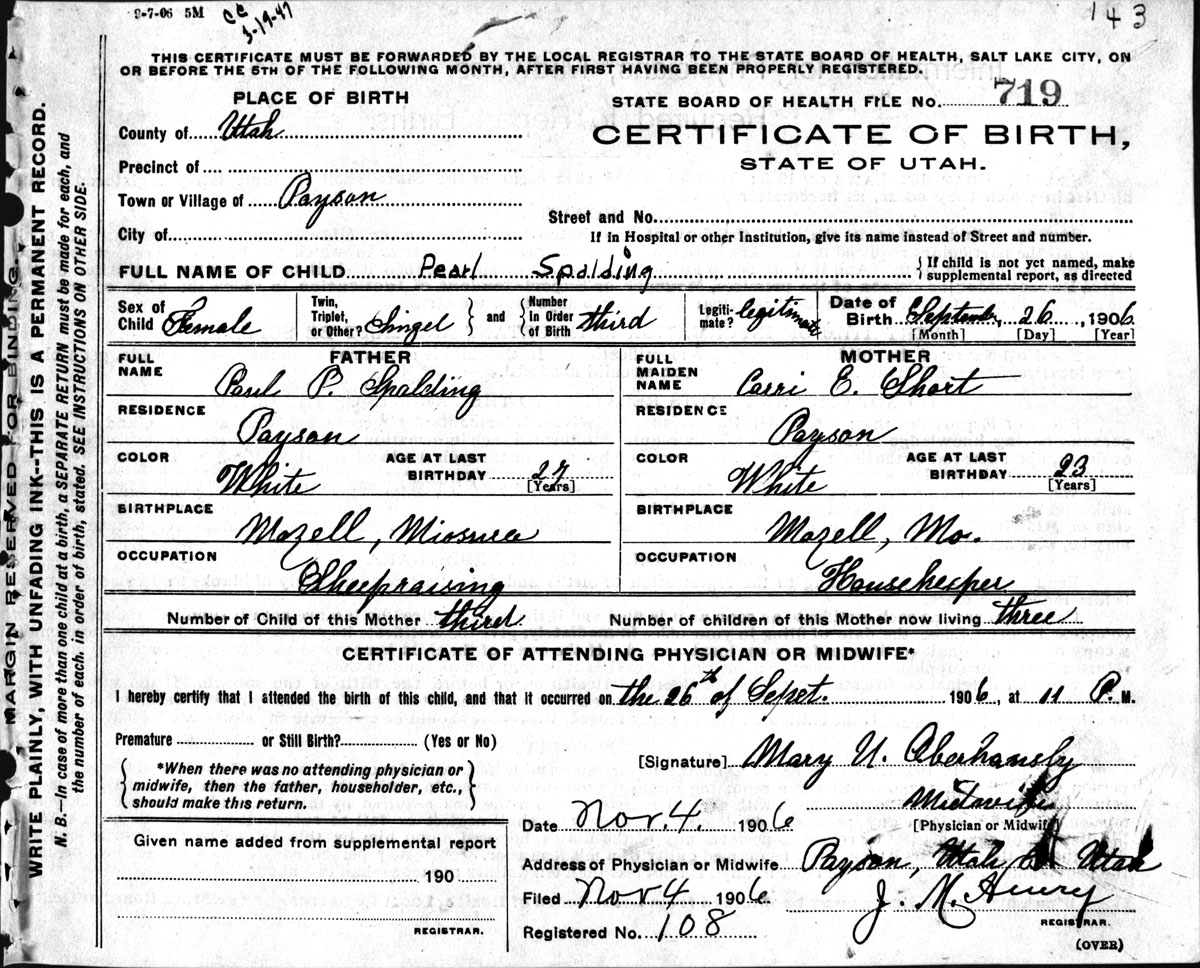 9-7-06 5M
CC
3-19-47
143
THIS CERTIFICATE MUST BE FORWARDED BY THE LOCAL REGISTRAR TO THE STATE BOARD OF HEALTH, SALT LAKE CITY, ON
OR BEFORE THE 5TH OF THE FOLLOWING MONTH, AFTER FIRST HAVING BEEN PROPERLY REGISTERED.
MARGIN RESERVED FOR BINDING.
WRITE PLAINLY, WITH UNFADING INK--THIS IS A PERMANENT RECORD.
N. B.--In case of more than one child at a birth, a SEPARATE RETURN must be made for each, and
the number of each, in order of birth, stated. SEE INSTRUCTIONS ON OTHER SIDE.
PLACE OF BIRTH
STATE BOARD OF HEALTH FILE No. 719
County of Utah
CERTIFICATE OF BIRTH,
STATE OF UTAH.
Precinct of
Town or Village of Payson
Street and No.
City of
If in Hospital or other Institution, give its name instead of Street and number.
FULL NAME OF CHILD Pearl Spalding
{ If child is not yet named, make
supplemental report, as directed
Sex of Child Female
Twin, Triplet, or Other? Singel } and { Number In Order of Birth third
Legiti-mate? legitimate
Date of Birth September 26, 1906
[Month] [Day] [Year]
FATHER
MOTHER
FULL NAME Paul P. Spalding
FULL MAIDEN NAME Carri E. Short
RESIDENCE Payson
RESIDENCE Payson
COLOR White AGE AT LAST BIRTHDAY 27 [Years]
COLOR White AGE AT LAST BIRTHDAY 23 [Years]
BIRTHPLACE Mozell,
BIRTHPLACE Mozell, Mo.
OCCUPATION Sheepraising
OCCUPATION Housekeeper
Number of Child of this Mother third Number of children of this Mother now living three
CERTIFICATE OF ATTENDING PHYSICIAN OR MIDWIFE*
I hereby certify that I attended the birth of this child, and that it occurred on the 26th of Sepet. 1906, at 11 P. M.
Premature or Still Birth? (Yes or No)
[Signature] Mary U. Oberhansly
{ *When there was no attending physician or
midwife, then the father, householder, etc.,
should make this return. }
Midwife
[Physician or Midwife]
Date Nov. 4. 1906
Given name added from supplemental report
190
REGISTRAR.
Address of Physician or Midwife Payson, Utah Co Utah
Filed Nov 4 1906 J. M. Henry
REGISTRAR.
Registered No. 108
(OVER)